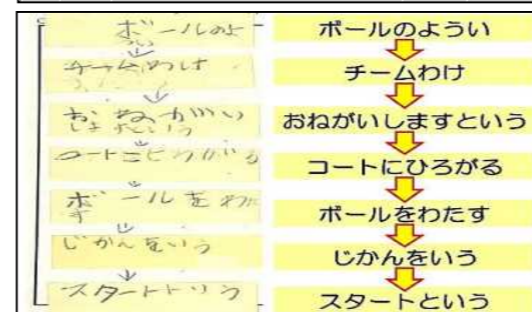 ボールのよ
うい
チームわけ
おねがい
しますという
コートニひろがる
ボールをわた
す
じかんをいう
スタートトいう
ボールのようい
チームわけ
おねがいしますという
コートにひろがる
ボールをわたす
じかんをいう
スタートという